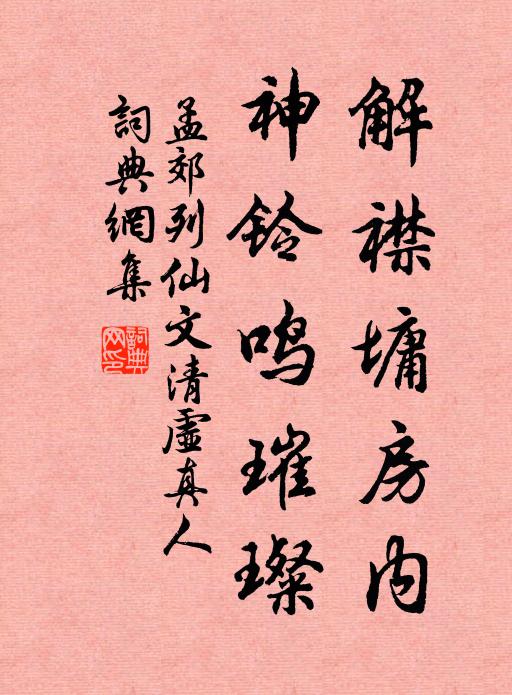 解襟墉房内
神鈴鳴璀璨
孟郊列仙文清虛真人
詞典網集
詞典网印